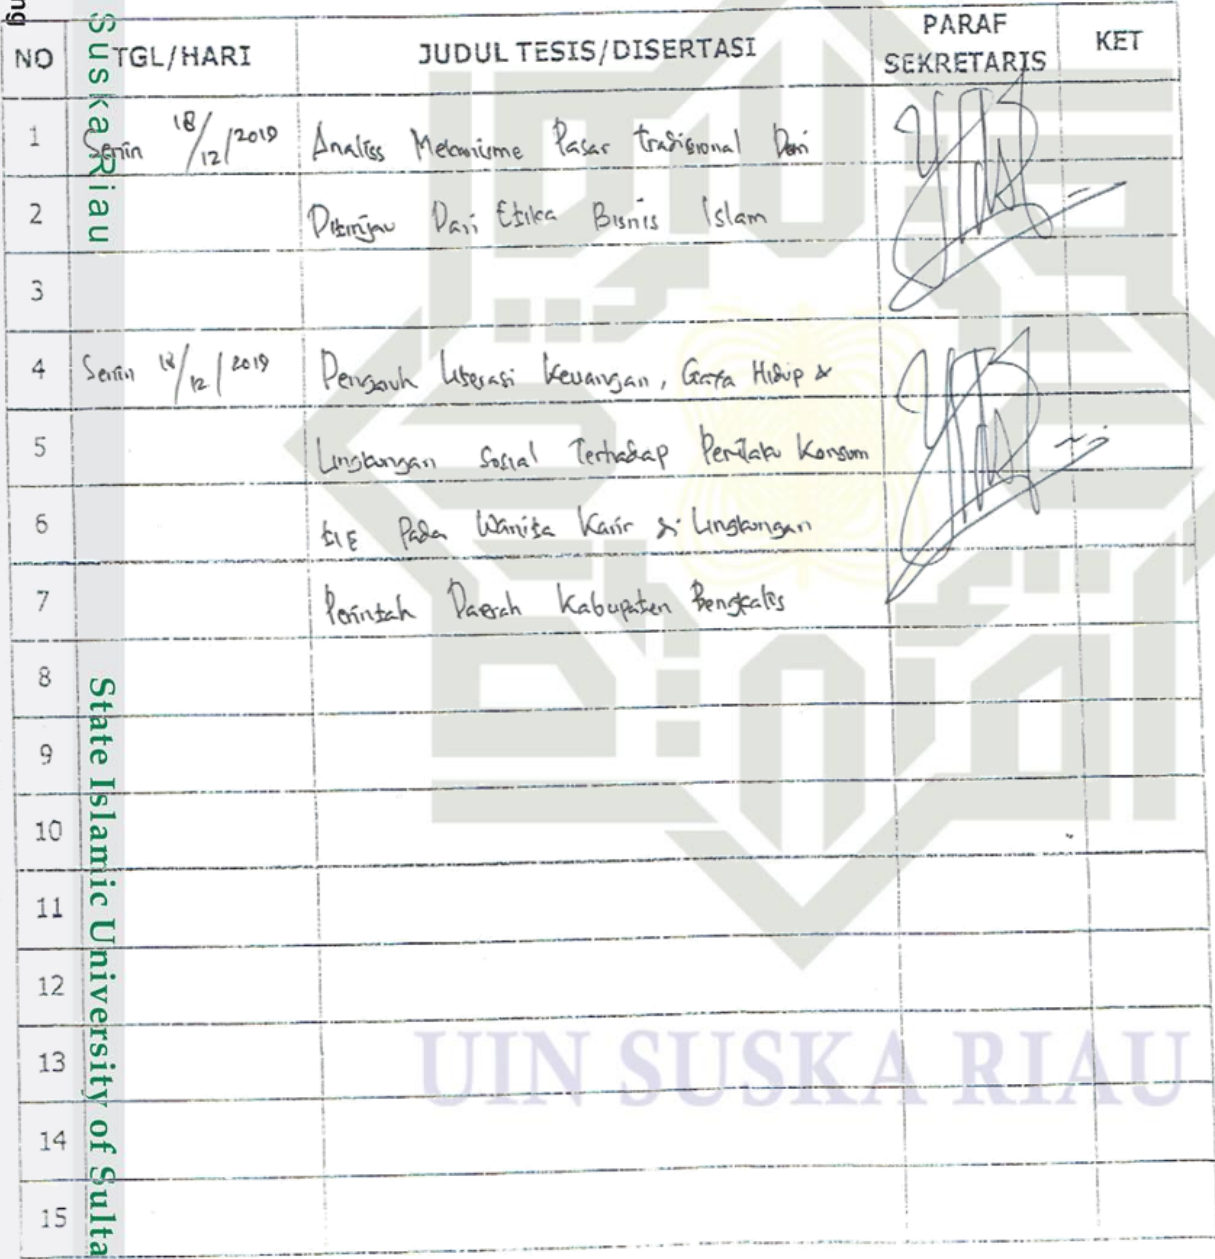 ng
Suska Riau
NO TGL/HARI JUDUL TESIS/DISERTASI PARAF SEKRETARIS KET
1 Senin 18/12/2019 Analiss Mekanisme Pasar tradisional Dari
2 Ditinjau Dari Etika Bisnis Islam
3
4 Senin 18/12/2019 Pengaruh Literasi Keuangan, Gaya Hidup &
5 Lingkungan Sosial Terhadap Perilaku Konsum
6 tif Pada Wanita Karir di Lingkungan
7 Perintah Daerah Kabupaten Bengkalis
8
9
10
11
12
13
14
15
State Islamic University of Sulta
UIN SUSKA RIAU